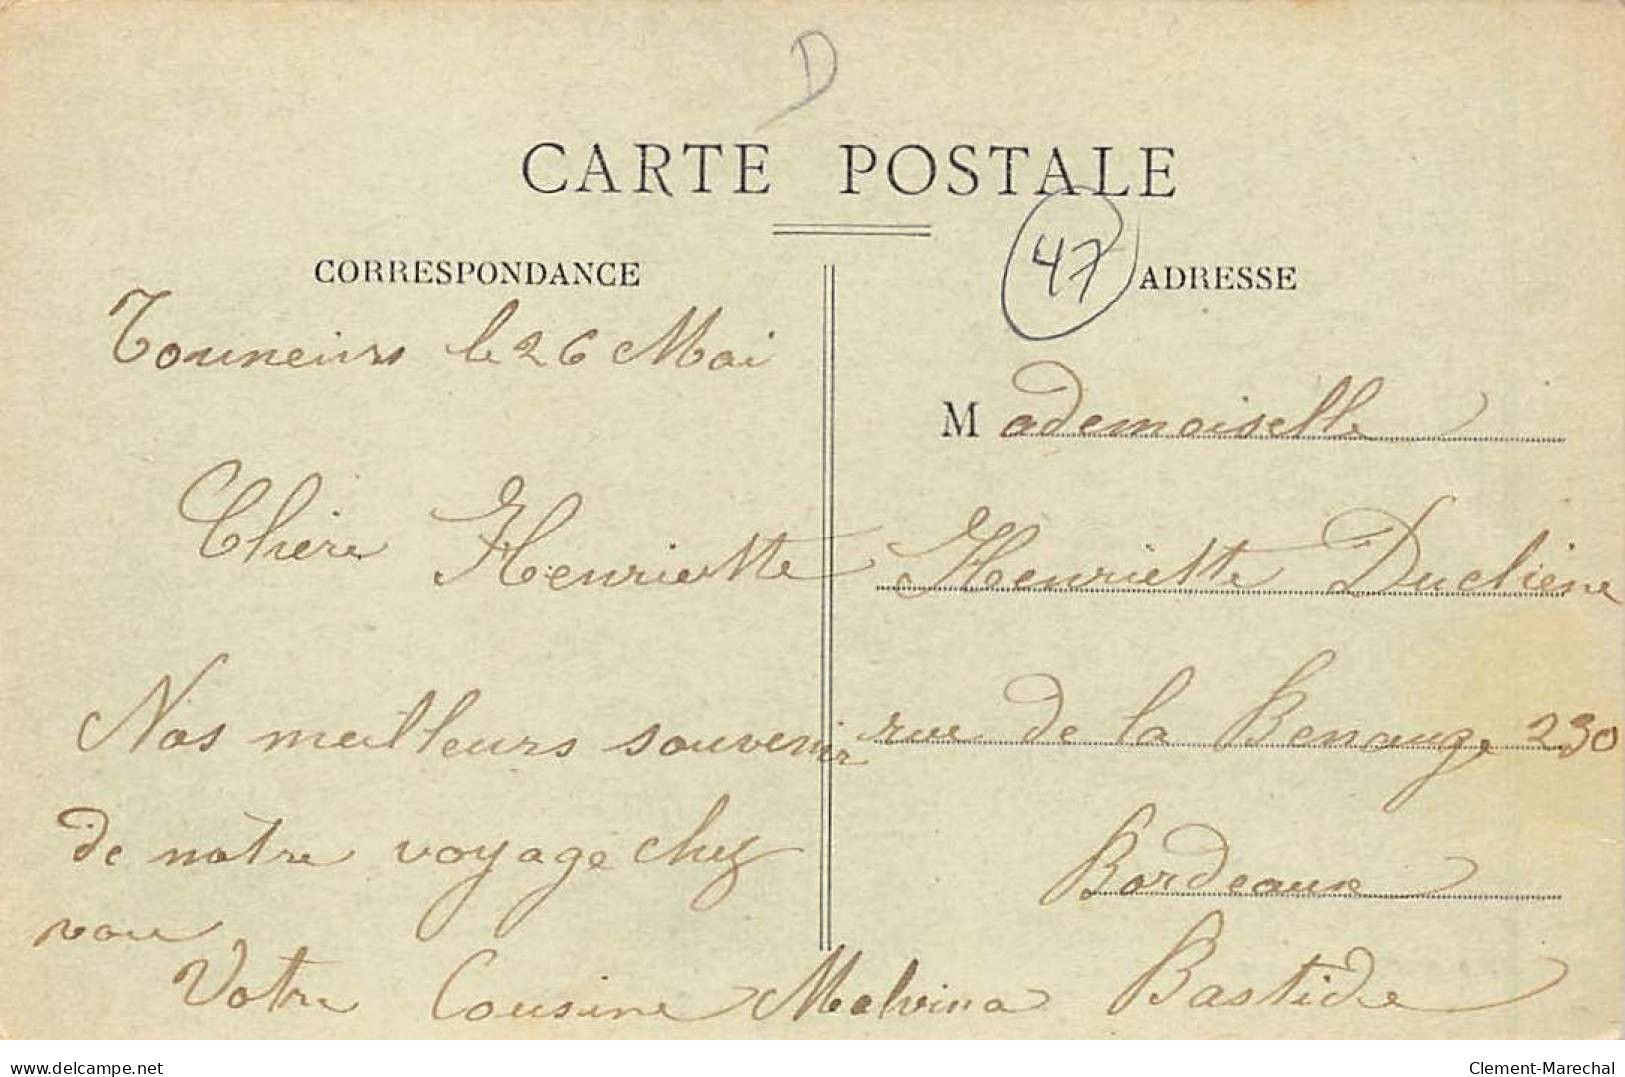 D
CARTE POSTALE
47
CORRESPONDANCE
Tonneins le 26 Mai
Chère Henriette
Nos meilleurs souvenir
de nôtre voyage chez
vou
Votre Cousine Malvina
ADRESSE
Mademoiselle
Henriette Duchène
rue de la Benauge 230
Bordeaux
Bastide
www.delcampe.net
Clement-Marechal